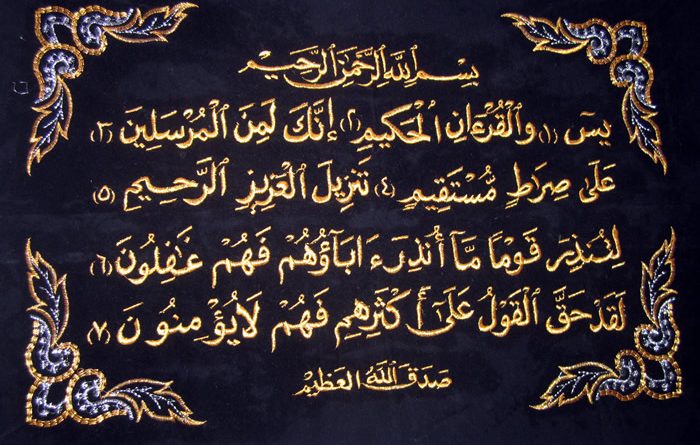 بِسْمِ ٱللَّهِ ٱلرَّحْمَٰنِ ٱلرَّحِيمِ
يسٓ (١) وَٱلْقُرْءَانِ ٱلْحَكِيمِ (٢) إِنَّكَ لَمِنَ ٱلْمُرْسَلِينَ (٣)
عَلَىٰ صِرَاطٍ مُّسْتَقِيمٍ (٤) تَنزِيلَ ٱلْعَزِيزِ ٱلرَّحِيمِ (٥)
لِتُنذِرَ قَوْمًا مَّآ أُنذِرَ ءَابَآؤُهُمْ فَهُمْ غَٰفِلُونَ (٦)
لَقَدْ حَقَّ ٱلْقَوْلُ عَلَىٰٓ أَكْثَرِهِمْ فَهُمْ لَا يُؤْمِنُونَ (٧)
صَدَقَ ٱللَّهُ ٱلْعَظِيمُ